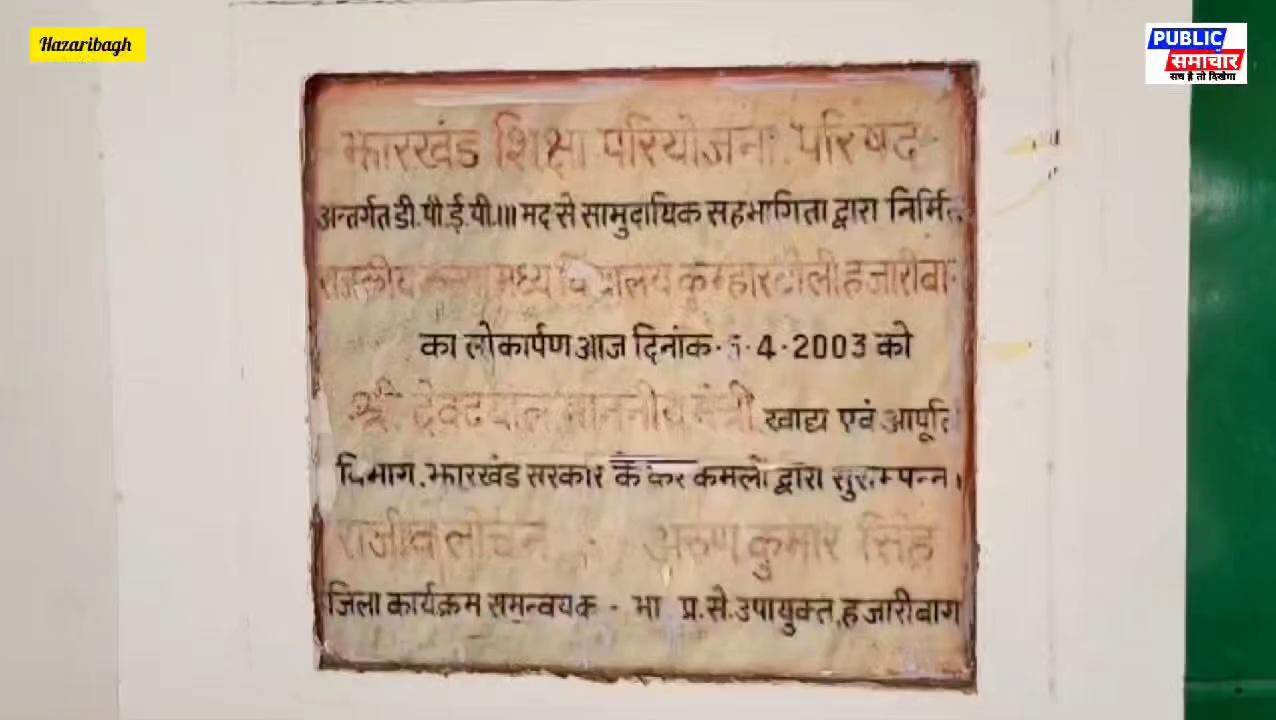 Hazaribagh
PUBLIC
समाचार
सच है तो दिखेगा
झारखंड शिक्षा परियोजना परिषद
अन्तर्गत डी.पी.ई.पी.III मद से सामुदायिक सहभागिता द्वारा निर्मित
राजकीय कन्या मध्य विद्यालय कुम्हारटोली हजारीबाग
का लोकार्पण आज दिनांक · 4 · 2003 को
श्री देवदयाल माननीय मंत्री खाद्य एवं आपूर्ति
विभाग, झारखंड सरकार के कर कमलों द्वारा सुसम्पन्न।
राजीव लोचन अरुण कुमार सिंह
जिला कार्यक्रम समन्वयक - भा प्र.से. उपायुक्त, हजारीबाग